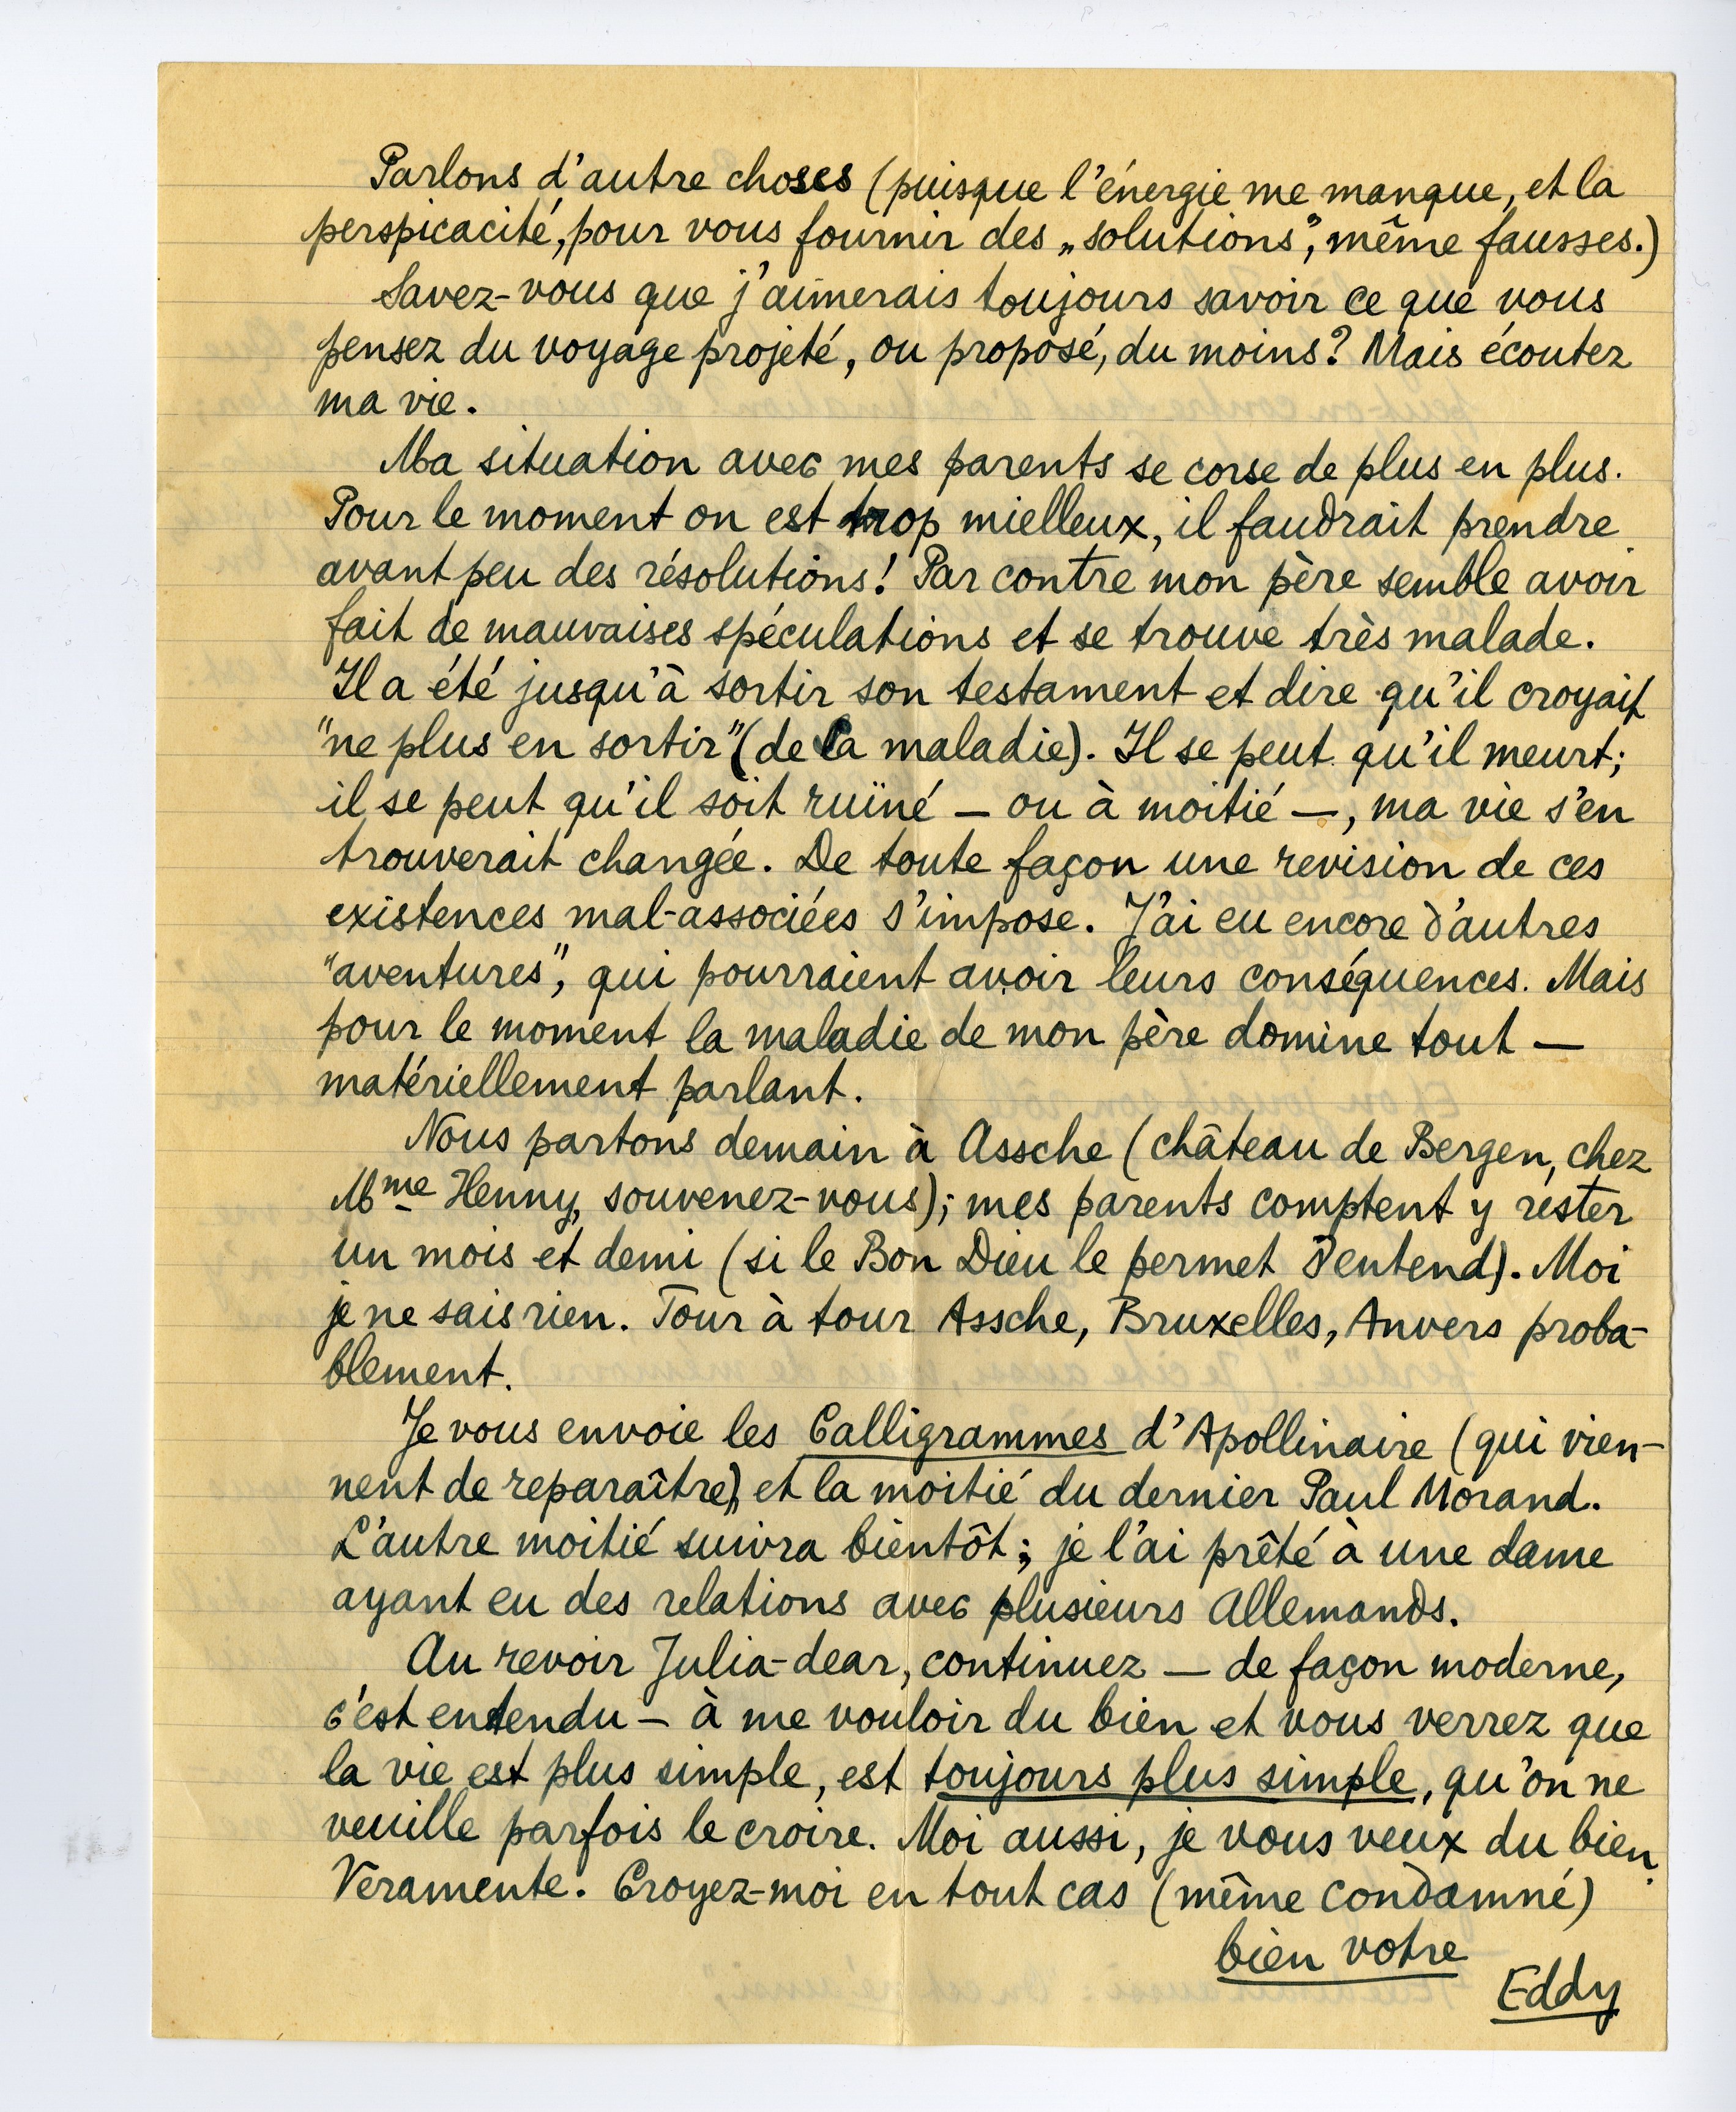 Parlons d'autre choses (puisque l'énergie me manque, et la
perspicacité, pour vous fournir des „solutions”, même fausses.)
Savez-vous que j'aimerais toujours savoir ce que vous
pensez du voyage projeté, ou proposé, du moins? Mais écoutez
ma vie.
Ma situation avec mes parents se corse de plus en plus.
Pour le moment on est trop mielleux, il faudrait prendre
avant peu des résolutions! Par contre mon père semble avoir
fait de mauvaises spéculations et se trouve très malade.
Il a été jusqu'à sortir son testament et dire qu'il croyait
"ne plus en sortir" (de la maladie). Il se peut qu'il meurt;
il se peut qu'il soit ruïné — ou à moitié —, ma vie s'en
trouverait changée. De toute façon une revision de ces
existences mal-associées s'impose. J'ai eu encore d'autres
"aventures", qui pourraient avoir leurs conséquences. Mais
pour le moment la maladie de mon père domine tout —
matériellement parlant.
Nous partons demain à Assche (château de Bergen, chez
Mme Henny, souvenez-vous); mes parents comptent y rester
un mois et demi (si le Bon Dieu le permet s'entend). Moi
je ne sais rien. Tour à tour Assche, Bruxelles, Anvers proba-
blement.
Je vous envoie les Calligrammes d'Apollinaire (qui vien-
nent de reparaître), et la moitié du dernier Paul Morand.
L'autre moitié suivra bientôt; je l'ai prêté à une dame
ayant eu des relations avec plusieurs Allemands.
Au revoir Julia-dear, continuez — de façon moderne,
c'est entendu — à me vouloir du bien et vous verrez que
la vie est plus simple, est toujours plus simple, qu'on ne
veuille parfois le croire. Moi aussi, je vous veux du bien.
Veramente. Croyez-moi en tout cas (même condamné)
bien votre
Eddy